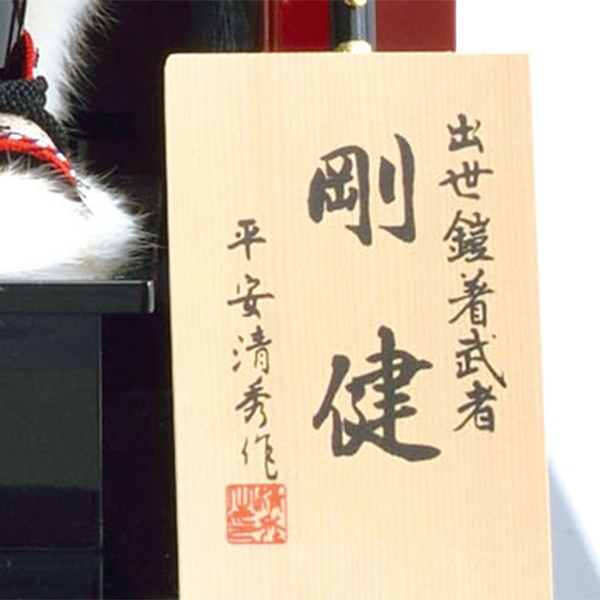 出世鎧着武者
剛健
平安清秀作